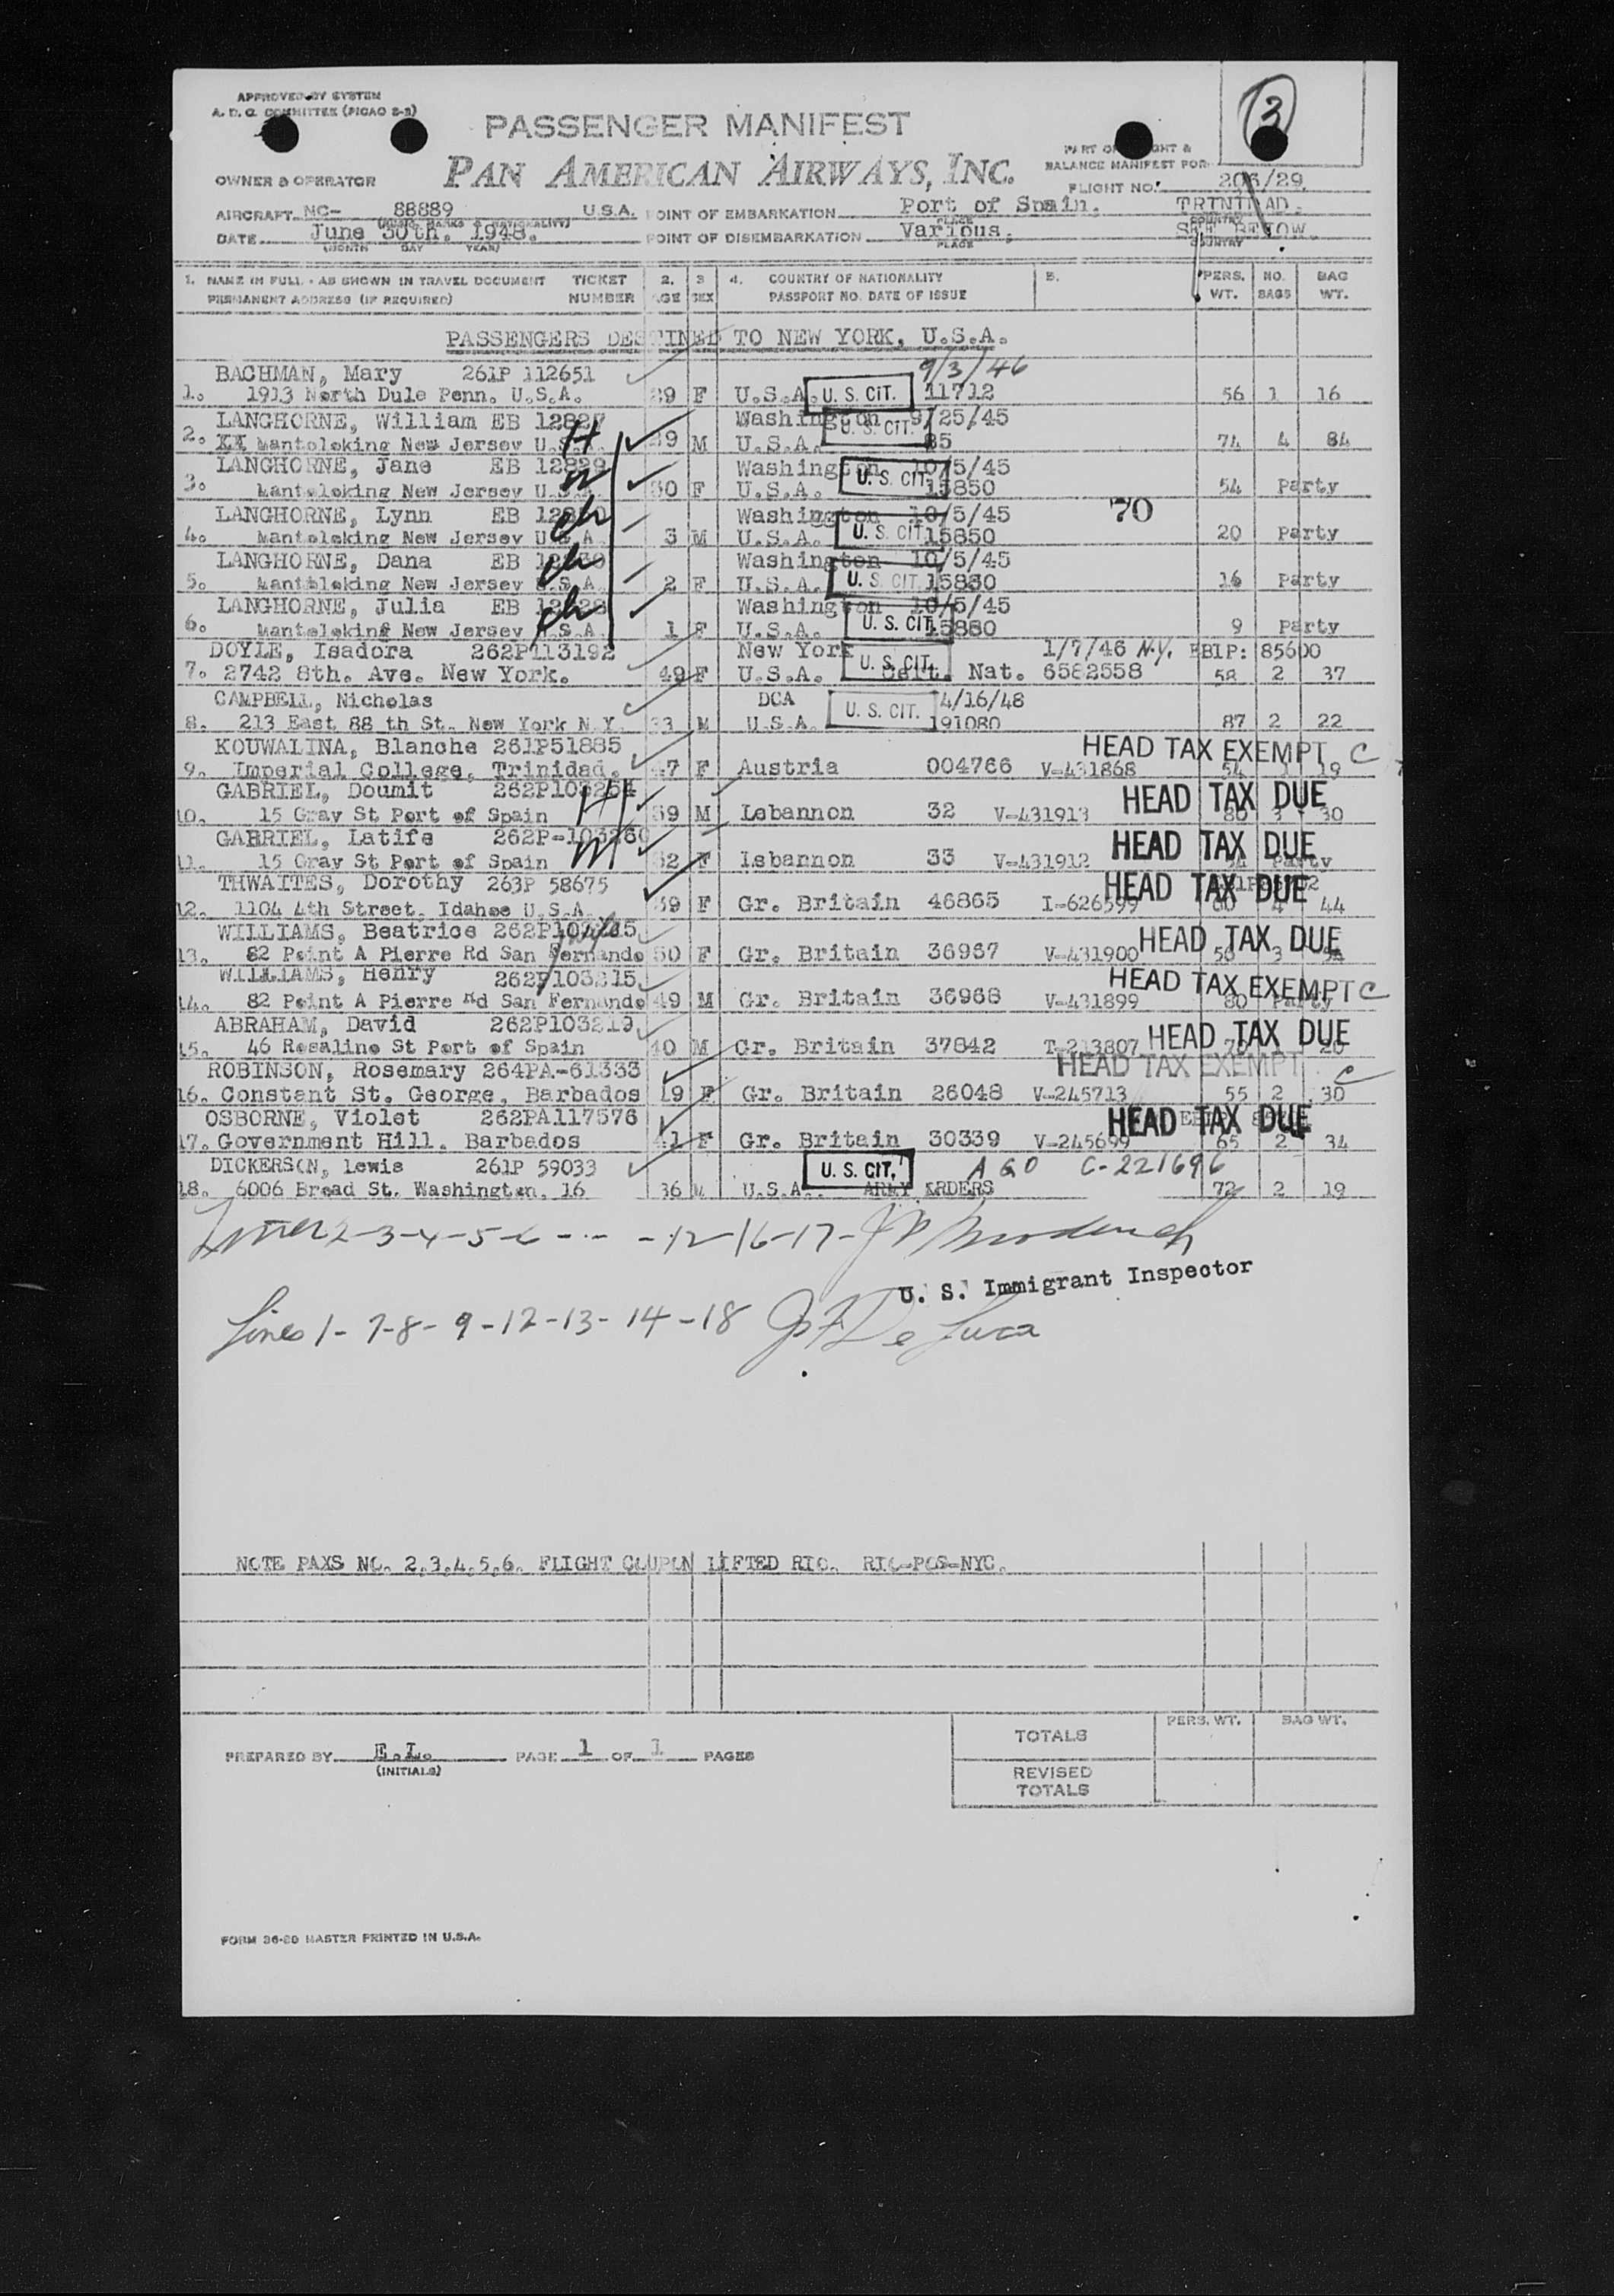 APPROVED BY SYSTEM
A. D. Q. COMMITTEE (PICAO 2-2)
PASSENGER MANIFEST
PAN AMERICAN AIRWAYS, INC.
PART OF WEIGHT &
BALANCE MANIFEST FOR
OWNER & OPERATOR
FLIGHT NO. 203/29
AIRCRAFT NC- 88889 U.S.A. POINT OF EMBARKATION Port of Spain. TRINIDAD.
DATE June 30th. 1948. POINT OF DISEMBARKATION Various. SEE BELOW.
(MONTH DAY YEAR) PLACE COUNTRY
1. NAME IN FULL - AS SHOWN IN TRAVEL DOCUMENT TICKET 2. 3 4. COUNTRY OF NATIONALITY 5. PERS. NO. BAG
PERMANENT ADDRESS (IF REQUIRED) NUMBER AGE SEX PASSPORT NO. DATE OF ISSUE WT. BAGS WT.
PASSENGERS DESTINED TO NEW YORK, U.S.A.
BACHMAN, Mary 261P 112651 9/3/46
1. 1913 North Dule Penn. U.S.A. 29 F U.S.A. U. S. CIT. 11712 56 1 16
LANGHORNE, William EB 12827 H Washington 9/25/45
2. XX Mantoloking New Jersey U.S.A. 29 M U.S.A. U. S. CIT. 85 74 4 84
LANGHORNE, Jane EB 12829 Washington 10/5/45
3. Mantoloking New Jersey U.S.A. 30 F U.S.A. U. S. CIT. 15850 54 Party
LANGHORNE, Lynn EB ch Washington 10/5/45 70
4. Mantoloking New Jersey U.S.A. 3 M U.S.A. U. S. CIT. 15850 20 Party
LANGHORNE, Dana EB ch Washington 10/5/45
5. Mantoloking New Jersey U.S.A. 2 F U.S.A. U. S. CIT. 15850 16 Party
LANGHORNE, Julia EB ch Washington 10/5/45
6. Mantoloking New Jersey U.S.A. 1 F U.S.A. U. S. CIT. 15850 9 Party
DOYLE, Isadora 262P113192 New York 1/7/46 N.Y. EBIP: 85600
7. 2742 8th. Ave. New York. 49 F U.S.A. U. S. CIT. Cert. Nat. 6582558 58 2 37
CAMPBELL, Nicholas DCA 4/16/48
8. 213 East 88 th St. New York N.Y. 33 M U.S.A. U. S. CIT. 191080 87 2 22
KOUWALINA, Blanche 261P51885 HEAD TAX EXEMPT C
9. Imperial College, Trinidad. 47 F Austria 004766 V-431868 54 1 19
GABRIEL, Doumit 262P103254 H HEAD TAX DUE
10. 15 Gray St Port of Spain 59 M Lebannon 32 V-431913 80 3 30
GABRIEL, Latife 262P-103260 HEAD TAX DUE
11. 15 Gray St Port of Spain 52 F Lebannon 33 V-431912 Party
THWAITES, Dorothy 263P 58675 HEAD TAX DUE
12. 1104 4th Street. Idahoe U.S.A. 39 F Gr. Britain 46865 I-626599 60 4 44
WILLIAMS, Beatrice HEAD TAX DUE
13. 82 Point A Pierre Rd San Fernando 50 F Gr. Britain 36967 V-431900 3
WILLIAMS, Henry 262P103215 HEAD TAX EXEMPT C
14. 82 Point A Pierre Rd San Fernando 49 M Gr. Britain 36968 V-431899 80 Party
ABRAHAM, David 262P103219 HEAD TAX DUE
15. 46 Rosalino St Port of Spain 40 M Gr. Britain 37842 T-213807
ROBINSON, Rosemary 264PA-61333 HEAD TAX EXEMPT C
16. Constant St. George, Barbados 19 F Gr. Britain 26048 V-245713 55 2 30
OSBORNE, Violet 262PA117576 HEAD TAX DUE
17. Government Hill. Barbados 41 F Gr. Britain 30339 V-245699 65 2 34
DICKERSON, Lewis 261P 59033 U. S. CIT. AGO C-221696
18. 6006 Broad St. Washington. 16 36 M U.S.A. ARMY ORDERS 72 2 19
Lines 2-3-4-5-6 - - - -12-16-17-
U. S. Immigrant Inspector
Lines 1-7-8-9-12-13-14-18 De Luca
NOTE PAXS NO. 2.3.4.5.6. FLIGHT COUPON LIFTED RIO. RIO-POS-NYC.
PERS. WT. BAG WT.
TOTALS
PREPARED BY E.L. PAGE 1 OF 1 PAGES
(INITIALS)
REVISED
TOTALS
FORM 36-20 MASTER PRINTED IN U.S.A.